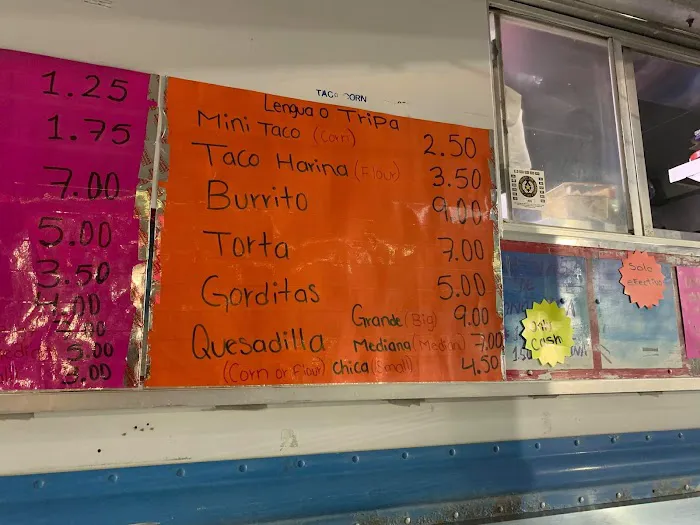 1.25
1.75
7.00
5.00
3.50
5.00
3.00
TACO CORN
Lengua o Tripa
Mini Taco (Corn) 2.50
Taco Harina (Flour) 3.50
Burrito 9.00
Torta 7.00
Gorditas 5.00
Quesadilla Grande (Big) 9.00
Mediana (Median) 7.00
(Corn or Flour) chica (Small) 4.50
Solo
efectivo
only
cash
1.50